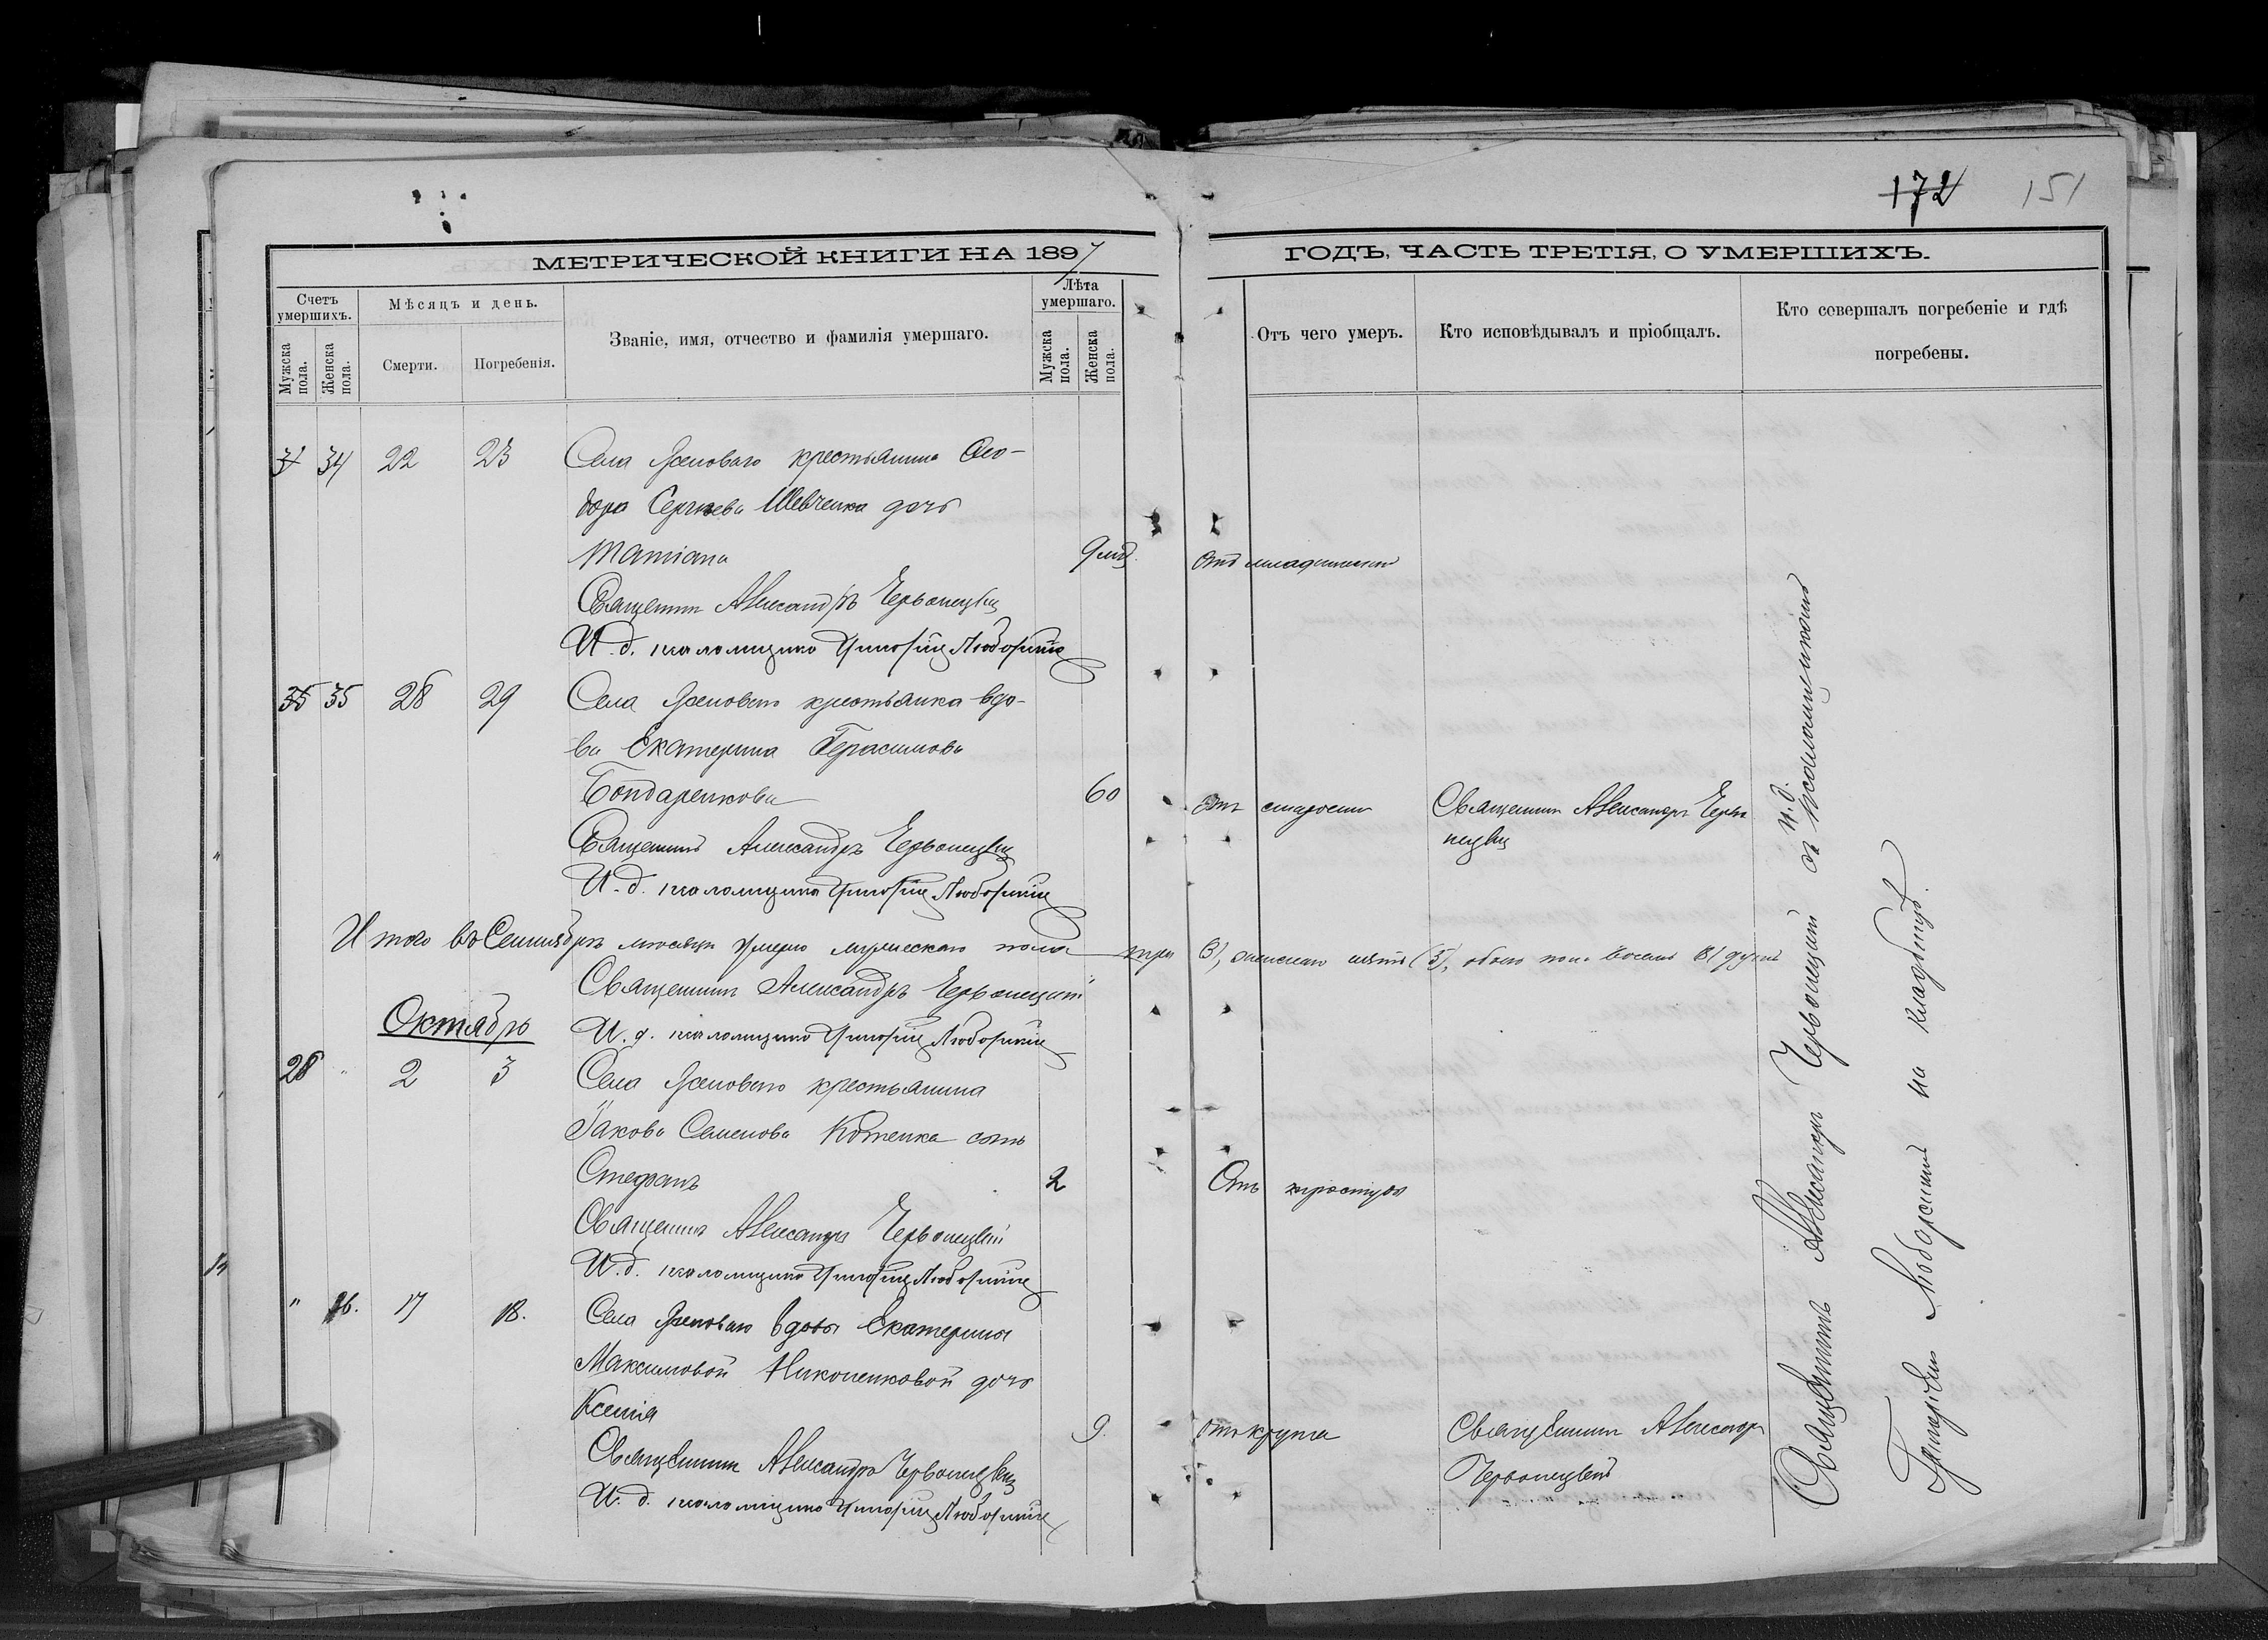 172 151
МЕТРИЧЕСКОЙ КНИГИ НА 1897 ГОДЪ, ЧАСТЬ ТРЕТІЯ, О УМЕРШИХЪ.
Счетъ умершихъ.
Мужска пола.
Женска пола.
Мѣсяцъ и день.
Смерти.
Погребенія.
Званіе, имя, отчество и фамилія умершаго.
Лѣта умершаго.
Мужска пола.
Женска пола.
Отъ чего умеръ.
Кто исповѣдывалъ и пріобщалъ.
Кто совершалъ погребеніе и гдѣ погребены.
34 22 23 Села крестьянина Ѳео-
дора Сергѣева Шевченка дочь
Татіана 9
Священникъ Александръ Червонецкій
И. д. псаломщика Григорій Люборскій
35 35 28 29 Села крестьянка вдо-
ва Екатерина Герасимова
Бондаренкова 60 отъ старости Священникъ Александръ Черво
нецкій
Священникъ Александръ Червонецкій
И. д. псаломщика Григорій Люборскій
Итого въ Сентябрѣ мѣсяцѣ умерло мужескаго пола три (3), женскаго пять (5), обоего пола восемь (8) душъ
Священникъ Александръ Червонецкій
Октябрь
И. д. псаломщика Григорій Люборскій
28 " 2 3 Села крестьянина
Іакова Семенова Котенка сынъ
Стефанъ 2 Отъ простуды
Священникъ Александръ Червонецкій
И. д. псаломщика Григорій Люборскій
" 36. 17 18. Села вдовы Екатерины
Максимовой Никоненковой дочь
Ксенія 9. отъ крупа Священникъ Александръ
Червонецкій
Священникъ Александръ Червонецкій
И. д. псаломщика Григорій Люборскій
Священникъ Александръ Червонецкій съ и. д. псаломщикомъ
Григоріемъ Люборскимъ на кладбищѣ.